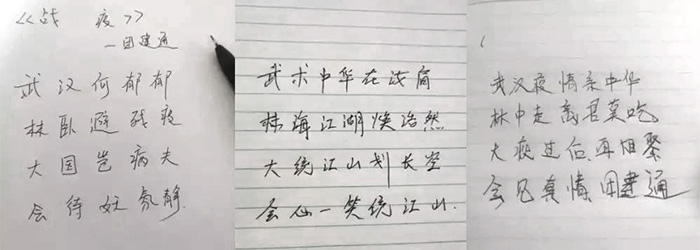 《战 疫》
—田建通
武汉何郁郁
林卧避残疫
大国岂病夫
会待妖氛静
武术中华在汝肩
林海江湖焕浩然
大统江山划长空
会心一笑统江山.
武汉疫情系中华
林中走禽君莫吃
大疫过后再相聚
会见真情田建通